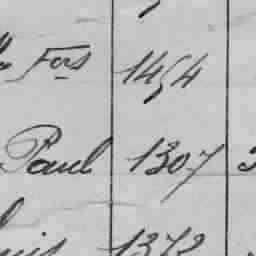 Fcs 1454
Paul 1307
1372